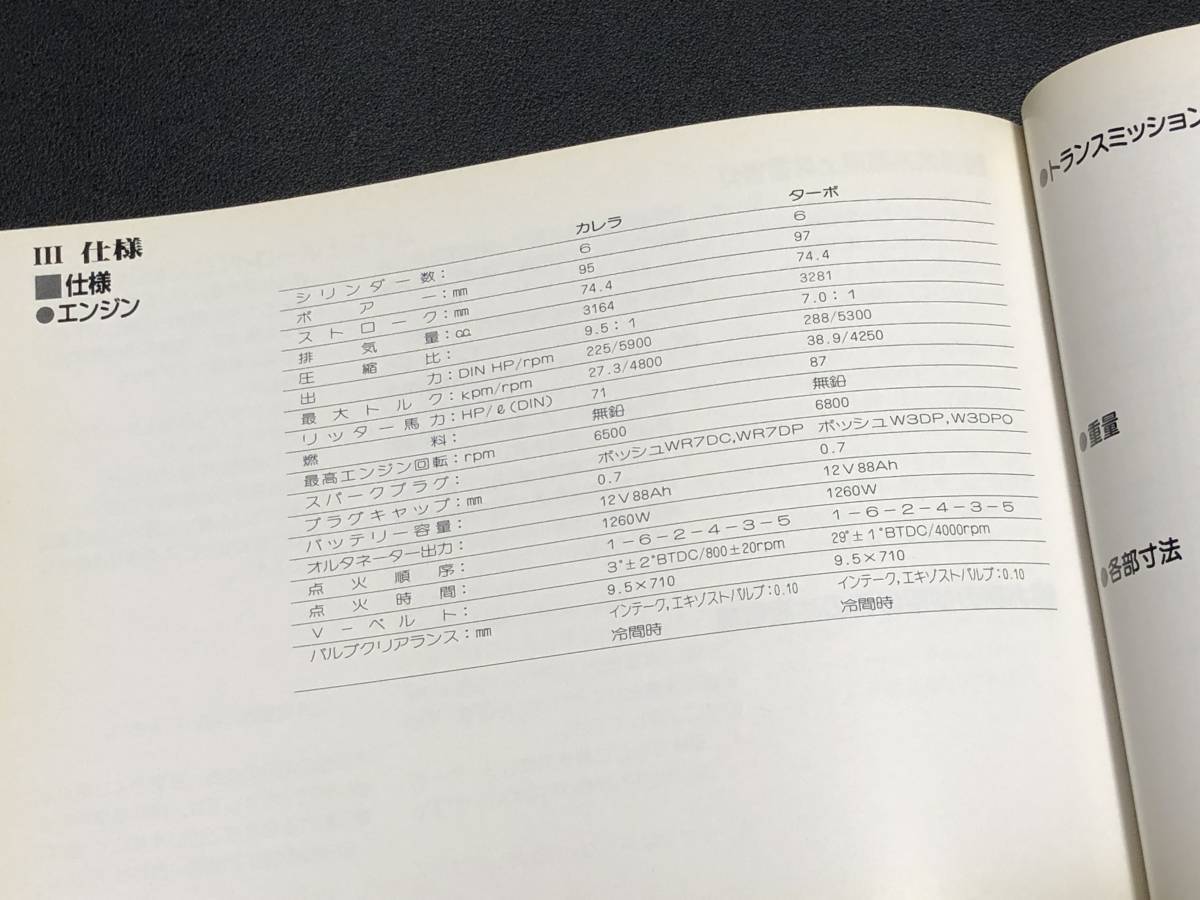 III 仕様
■仕様
●エンジン
カレラ ターボ
シリンダー数： 6 6
ボアー：㎜ 95 97
ストローク：㎜ 74.4 74.4
排気量：㏄ 3164 3281
圧縮比： 9.5：1 7.0：1
出力：DIN HP/rpm 225/5900 288/5300
最大トルク：kpm/rpm 27.3/4800 38.9/4250
リッター馬力：HP/ℓ(DIN) 71 87
燃料： 無鉛 無鉛
最高エンジン回転：rpm 6500 6800
スパークプラグ： ボッシュWR7DC,WR7DP ボッシュW3DP,W3DP0
プラグギャップ：㎜ 0.7 0.7
バッテリー容量： 12V88Ah 12V88Ah
オルタネーター出力： 1260W 1260W
点火順序： 1－6－2－4－3－5 1－6－2－4－3－5
点火時間： 3°±2°BTDC/800±20rpm 29°±1°BTDC/4000rpm
V－ベルト： 9.5×710 9.5×710
バルブクリアランス：㎜ インテーク,エキゾストバルブ：0.10 インテーク,エキゾストバルブ：0.10
冷間時 冷間時
●トランスミッション
●重量
●各部寸法